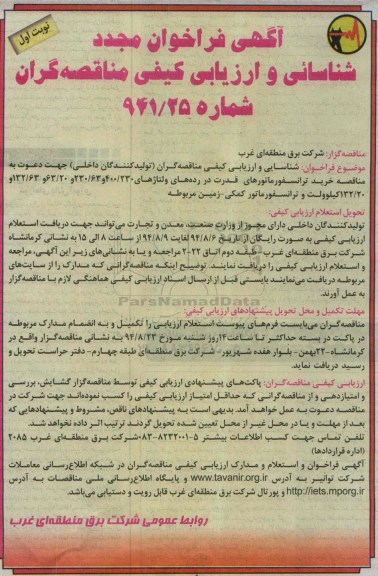 نوبت اول
آگهی فراخوان مجدد
شناسائی و ارزیابی کیفی مناقصه‌گران
شماره ۹۴۱/۲۵
مناقصه‌گزار: شرکت برق منطقه‌ای غرب
موضوع فراخوان: شناسایی و ارزیابی کیفی مناقصه‌گران (تولیدکنندگان داخلی) جهت دعوت به
مناقصه خرید ترانسفورماتورهای قدرت در رده‌های ولتاژهای ۴۰۰/۲۳۰و۲۳۰/۶۳و ۶۳/۲۰و ۱۳۲/۶۳و
۱۳۲/۲۰کیلوولت و ترانسفورماتور کمکی-زمین مربوطه
تحویل استعلام ارزیابی کیفی:
تولیدکنندگان داخلی دارای مجوز از وزارت صنعت، معدن و تجارت می‌توانند جهت دریافت استعلام
ارزیابی کیفی به صورت رایگان از تاریخ ۹۴/۸/۶ لغایت ۹۴/۸/۹ از ساعت ۸ الی ۱۵ به نشانی کرمانشاه
شرکت برق منطقه‌ای غرب - طبقه دوم اتاق ۲۰۲۲ مراجعه و یا به نشانی‌های زیر این آگهی، مراجعه
و استعلام ارزیابی کیفی را دریافت نمایند. توضیح اینکه مناقصه‌گرانی که مدارک را از سایت‌های
مربوطه دریافت می‌نمایند بایستی قبل از ارسال اسناد ارزیابی کیفی هماهنگی لازم با مناقصه‌گزار
به عمل آورند.
مهلت تکمیل و محل تحویل پیشنهادهای ارزیابی کیفی:
مناقصه‌گران می‌بایست فرم‌های پیوست استعلام ارزیابی را تکمیل و به انضمام مدارک مربوطه
در پاکت در بسته حداکثر تا ساعت ۱۴روز شنبه مورخ ۹۴/۸/۲۳ به نشانی مناقصه‌گزار واقع در
کرمانشاه-۲۲بهمن- بلوار هفده شهریور - شرکت برق منطقه‌ای طبقه چهارم- دفتر حراست تحویل و
رسید دریافت نماید.
ارزیابی کیفی مناقصه‌گران: پاکت‌های پیشنهادی ارزیابی کیفی توسط مناقصه‌گزار گشایش، بررسی
و امتیازدهی و از مناقصه‌گرانی که حداقل امتیاز ارزیابی کیفی را کسب نموده‌اند جهت شرکت در
مناقصه دعوت به عمل خواهد آمد. بدیهی است به پیشنهادهای ناقص، مشروط و پیشنهادهایی که
بعد از مهلت و یا در محل غیر از محل تعیین شده تحویل گردند ترتیب اثر داده نخواهد شد.
تلفن تماس جهت کسب اطلاعات بیشتر ۵-۰۸۳-۸۲۳۲۰۰۱شرکت برق منطقه‌ای غرب ۲۰۸۵
(اداره قراردادها)
آگهی فراخوان و استعلام و مدارک ارزیابی کیفی مناقصه‌گران در شبکه اطلاع‌رسانی معاملات
شرکت توانیر به آدرس www.tavanir.org.ir و پایگاه اطلاع‌رسانی ملی مناقصات به آدرس
http://iets.mporg.ir و پورتال شرکت برق منطقه‌ای غرب قابل رویت و دستیابی می‌باشد.
روابط عمومی شرکت برق منطقه‌ای غرب
ParsNamadData